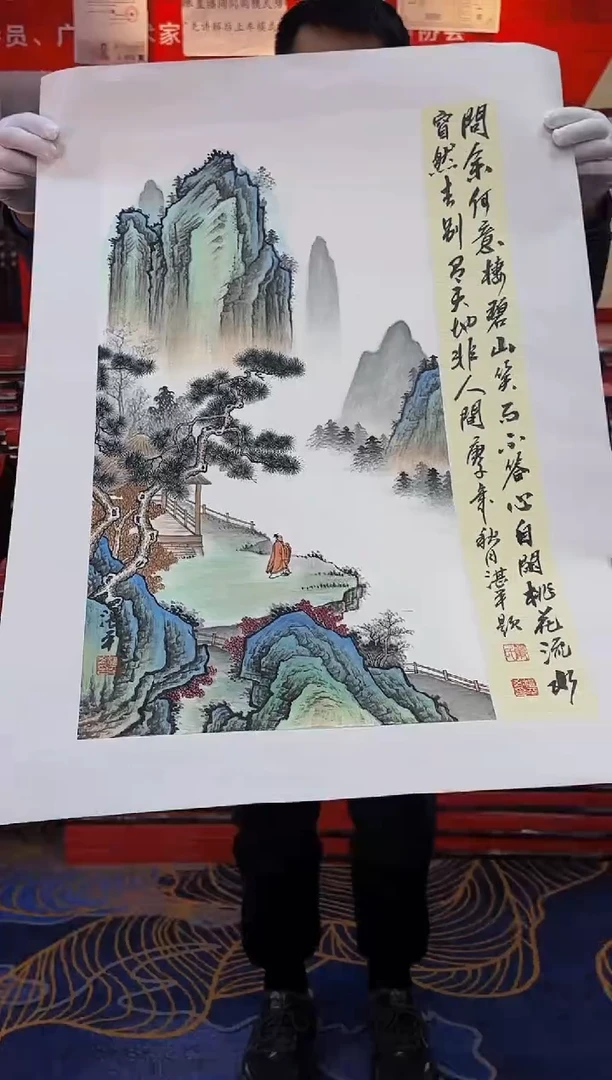 员、广 术家 协会
問余何意棲碧山笑而不答心自閑桃花流水
窅然去別有天地非人間庚子年秋月湛平题
湛平